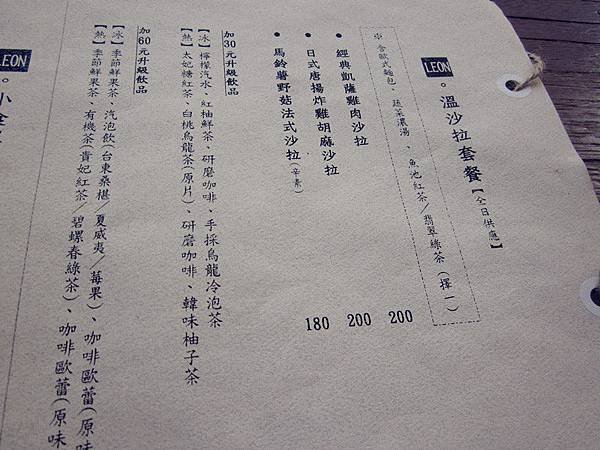 LEON
。溫沙拉套餐【全日供應】
※ 含歐式麵包、蔬菜濃湯、魚池紅茶／翡翠綠茶（擇一）
• 經典凱薩雞肉沙拉 200
• 日式唐揚炸雞胡麻沙拉 200
• 馬鈴薯野菇法式沙拉(辛素) 180
加30元升級飲品
【冰】檸檬汽水、紅柚鮮茶、研磨咖啡、手採烏龍冷泡茶
【熱】太妃糖紅茶、白桃烏龍茶(原片)、研磨咖啡、韓味柚子茶
加60元升級飲品
【冰】季節鮮果茶、汽泡飲(台東桑椹／夏威夷／莓果)、咖啡歐蕾(原味
【熱】季節鮮果茶、有機茶(貴妃紅茶／碧螺春綠茶)、咖啡歐蕾(原味
LEON
。小